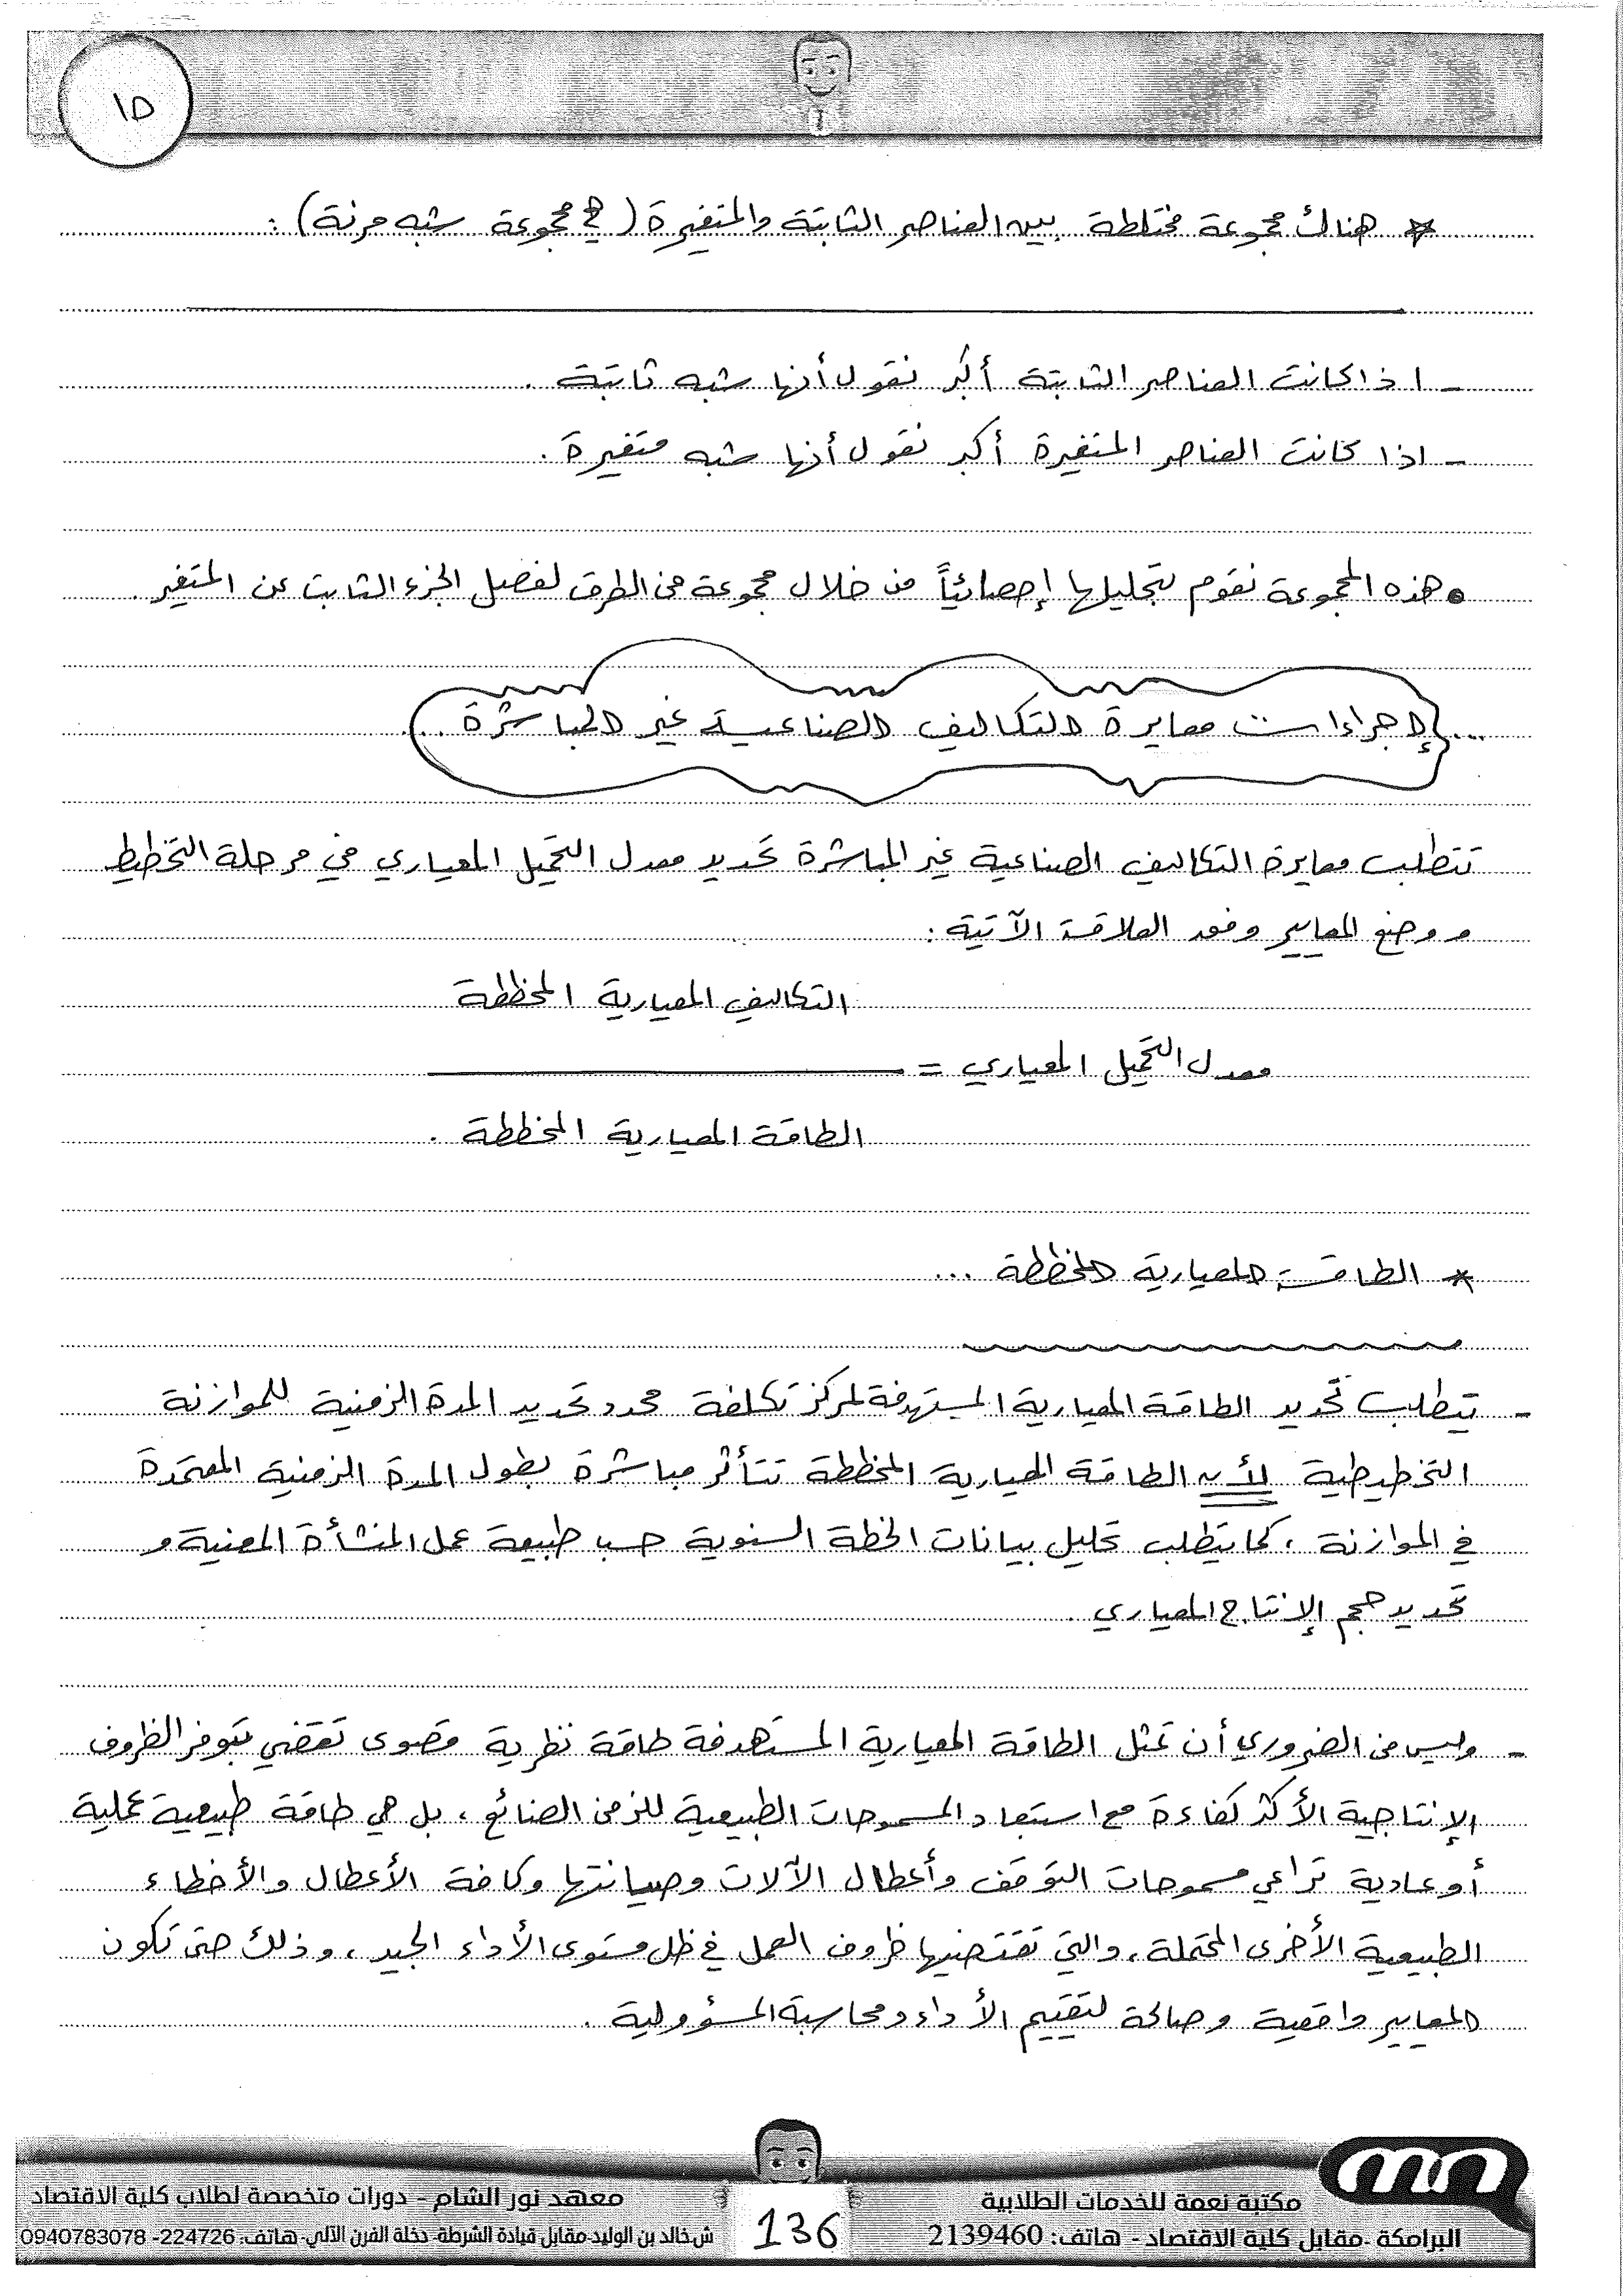 ١٥
* هناك مجموعة مختلطة بين العناصر الثابتة والمتغيرة ( هي مجموعة شبه مرنة ) :
- اذا كانت العناصر الثابتة أكبر نقول أنها شبه ثابتة .
- اذا كانت العناصر المتغيرة أكبر نقول أنها شبه متغيرة .
• هذه المجموعة نقوم بتحليلها إحصائياً من خلال مجموعة من الطرق لفصل الجزء الثابت عن المتغير .
... إجراءات معايرة التكاليف الصناعية غير المباشرة ...
تتطلب معايرة التكاليف الصناعية غير المباشرة تحديد معدل التحميل المعياري في مرحلة التخطيط
و وضع المعايير وفق العلاقة الآتية :
التكاليف المعيارية المخططة
معدل التحميل المعياري =
الطاقة المعيارية المخططة .
* الطاقة المعيارية المخططة ...
- يتطلب تحديد الطاقة المعيارية المستهدفة لمركز تكلفة محدد تحديد المدة الزمنية للموازنة
التخطيطية لأن الطاقة المعيارية المخططة تتأثر مباشرة بطول المدة الزمنية المعتمدة
في الموازنة ، كما يتطلب تحليل بيانات الخطة السنوية حسب طبيعة عمل المنشأة المعنية و
تحديد حجم الإنتاج المعياري .
- وليس من الضروري أن تمثل الطاقة المعيارية المستهدفة طاقة نظرية قصوى تقضي بتوفر الظروف
الإنتاجية الأكثر كفاءة مع استبعاد المسموحات الطبيعية للزمن الضائع ، بل هي طاقة طبيعية عملية
أو عادية تراعي مسموحات التوقف وأعطال الآلات وصيانتها وكافة الأعطال والأخطاء
الطبيعية الأخرى المحتملة ، والتي تقتضيها ظروف العمل في ظل مستوى الأداء الجيد ، وذلك حتى تكون
المعايير واقعية وصالحة لتقييم الأداء ومحاسبة المسؤولية .
مكتبة نعمة للخدمات الطلابية
البرامكة -مقابل كلية الاقتصاد - هاتف: 2139460
136
معهد نور الشام - دورات متخصصة لطلاب كلية الاقتصاد
ش خالد بن الوليد-مقابل قيادة الشرطة- دخلة الفرن الآلي-هاتف: 224726- 0940783078